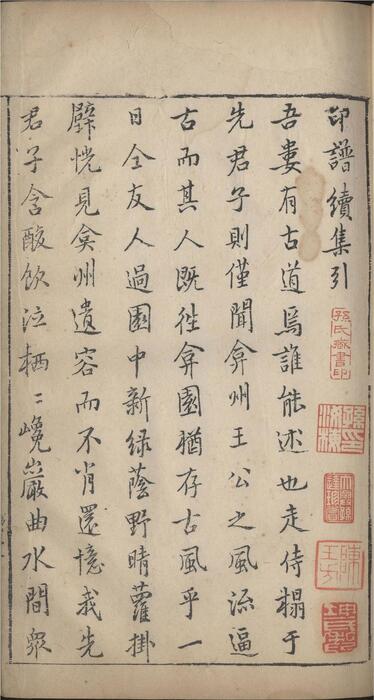 印譜續集引
吾婁有古道焉誰能述也走侍榻于
先君子則僅聞弇州王公之風流逼
古而其人既往弇園猶存古風乎一
日仝友人過園中新綠蔭野晴蘿掛
壁恍見弇州遺容而不肖還憶我先
君子含酸飲泣栖〻巉巖曲水間衆
孫氏藏書印